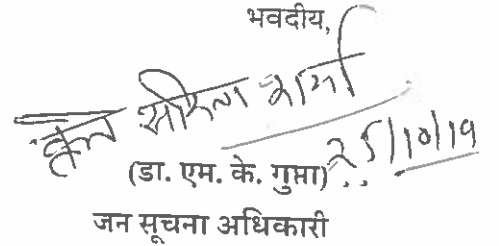 भवदीय,
शर्मा
25/10/19
(डा. एम. के. गुप्ता)
जन सूचना अधिकारी